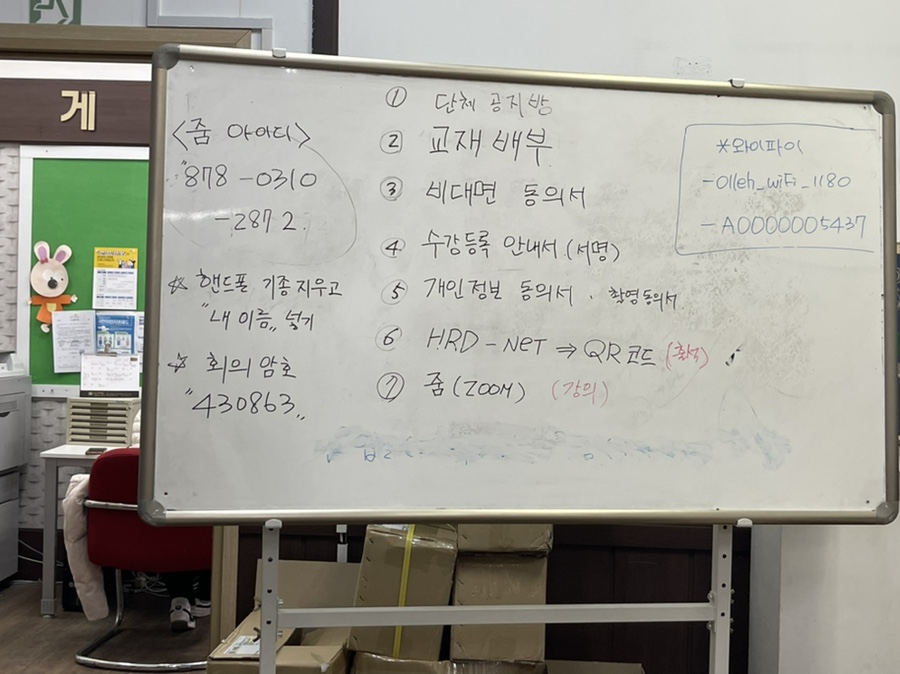 게
<줌 아이디>
"878-0310
-2872.
☆ 핸드폰 기종 지우고
"내 이름" 넣기
☆ 회의 암호
"430863"
① 단체 공지방
② 교재 배부
③ 비대면 동의서
④ 수강등록 안내서 (서명)
⑤ 개인정보 동의서 · 촬영동의서
⑥ HRD-NET ⇒ QR코드 (출석)
⑦ 줌 (ZOOM) (강의)
*와이파이
-olleh_wiFi_1180
-A0000005437